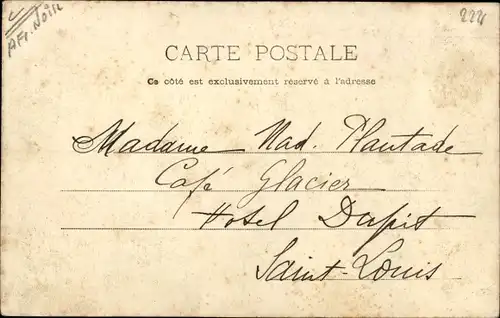 Afr. Noire
222
CARTE POSTALE
Ce côté est exclusivement réservé à l'adresse
Madame Nad. Plantade
Café Glacier
Hotel Dupit
Saint-Louis